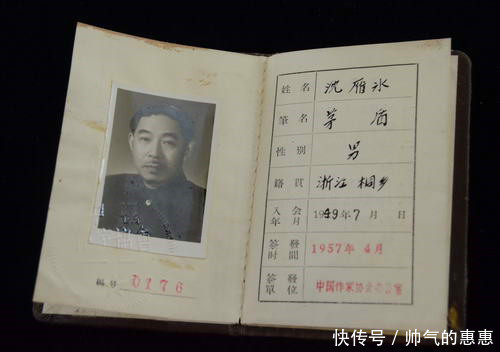 編号 0176
姓名 沈雁冰
筆名 茅盾
性别 男
籍貫 浙江桐乡
入会年月 1949年7月 日
签發时間 1957年4月
签發單位 中国作家协会办公室
快传号／帅气的惠惠